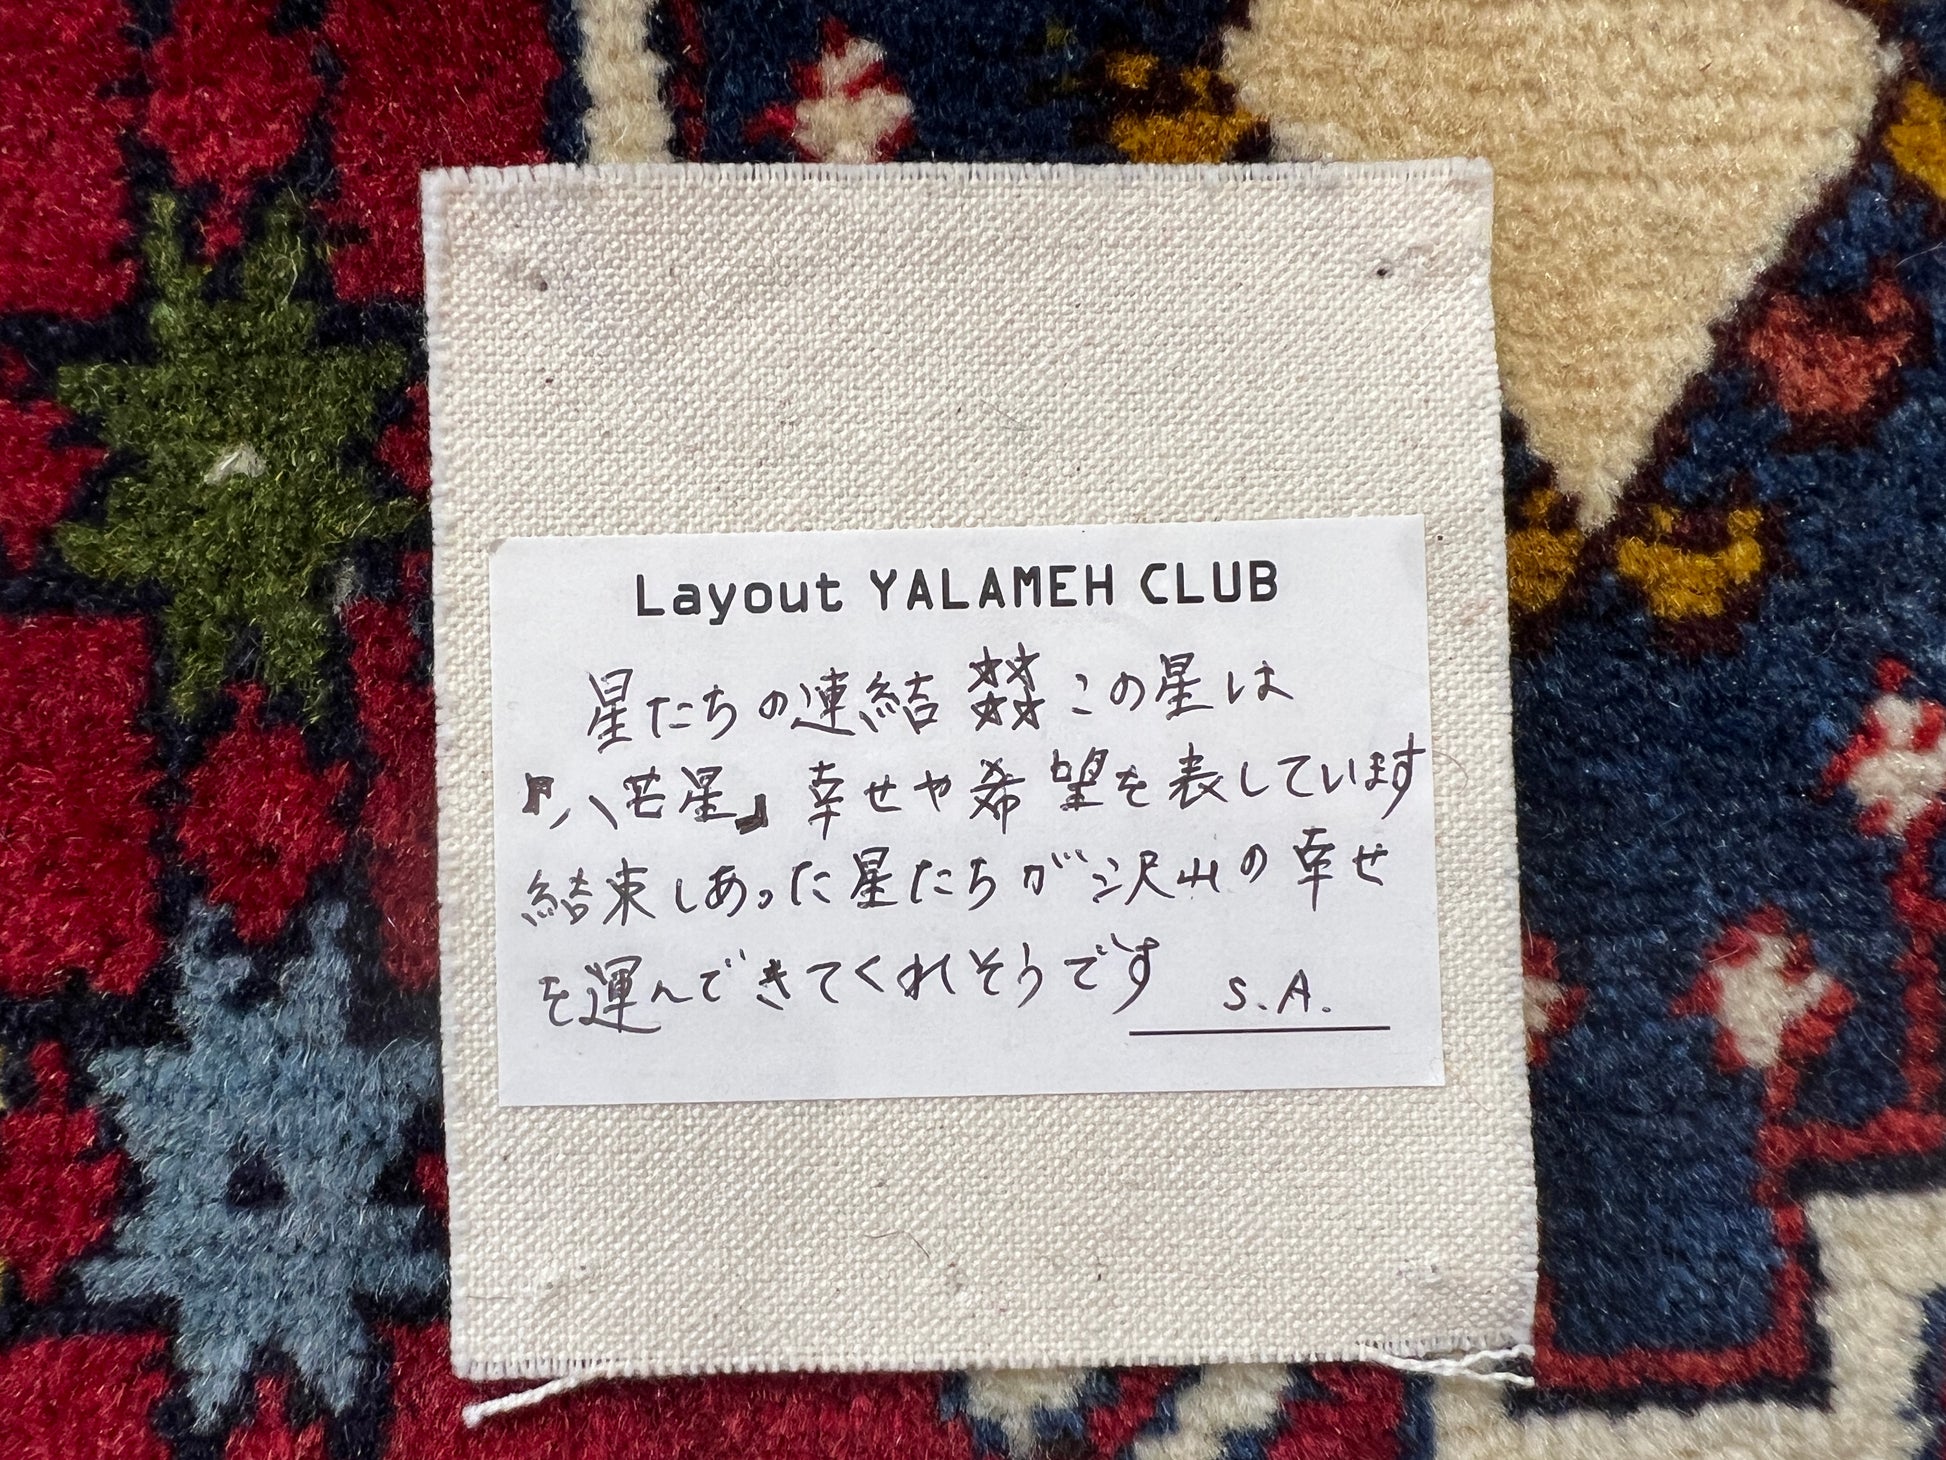 Layout YALAMEH CLUB
星たちの連結 ☆☆☆☆ この星は
『八芒星』幸せや希望を表しています
結束しあった星たちが沢山の幸せ
を運んできてくれそうです
S.A.